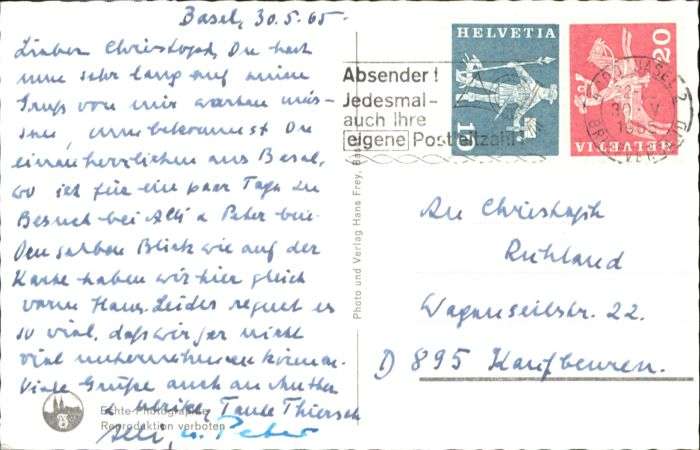 Basel, 30.5.65.
Lieber Christoph, Du hast
nun sehr lang auf einen
Gruß von mir warten müs-
sen, nun bekommst Du
einen herzlichen aus Basel,
wo ich für ein paar Tage zu
Besuch bei Alli u Peter bin.
Den selben Blick wie auf der
Karte haben wir hier gleich
vorm Haus. Leider regnet es
so viel, daß wir gar nicht
viel unternehmen können.
Viele Grüße auch an Mutter
u Ulrike, Tante Thiersch
Alli u. Peter
Echte Photographie
Reproduktion verboten
Photo und Verlag Hans Frey, Bas
HELVETIA
10
20
HELVETIA
Absender!
Jedesmal-
auch Ihre
eigene Postleitzahl
An Christoph
Ruhland
Wagenseilstr. 22.
D 895 Kaufbeuren.